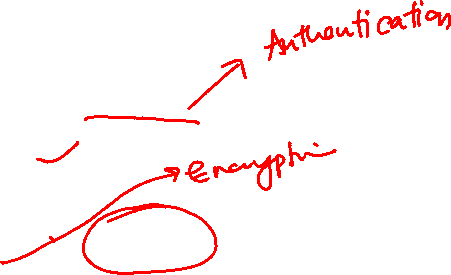 Authentication
Encryptn